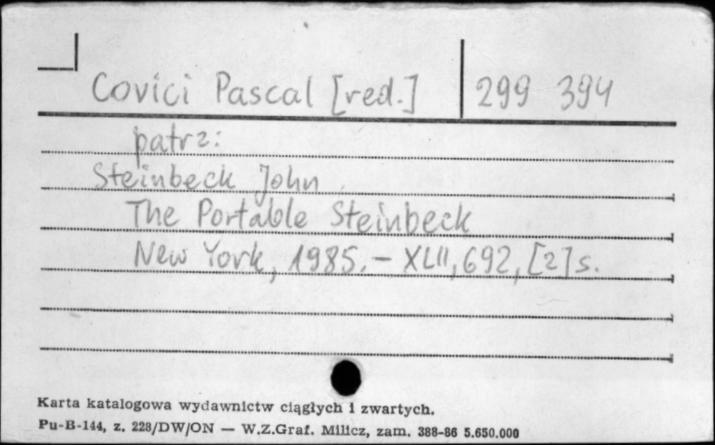 Covici Pascal [red.] 299 394
patrz:
Steinbeck John
The Portable Steinbeck
New York, 1985. - XLII, 692, [2] s.
Karta katalogowa wydawnictw ciągłych i zwartych.
Pu-B-144, z. 228/DW/ON — W.Z.Graf. Milicz, zam. 388-86 5.650.000